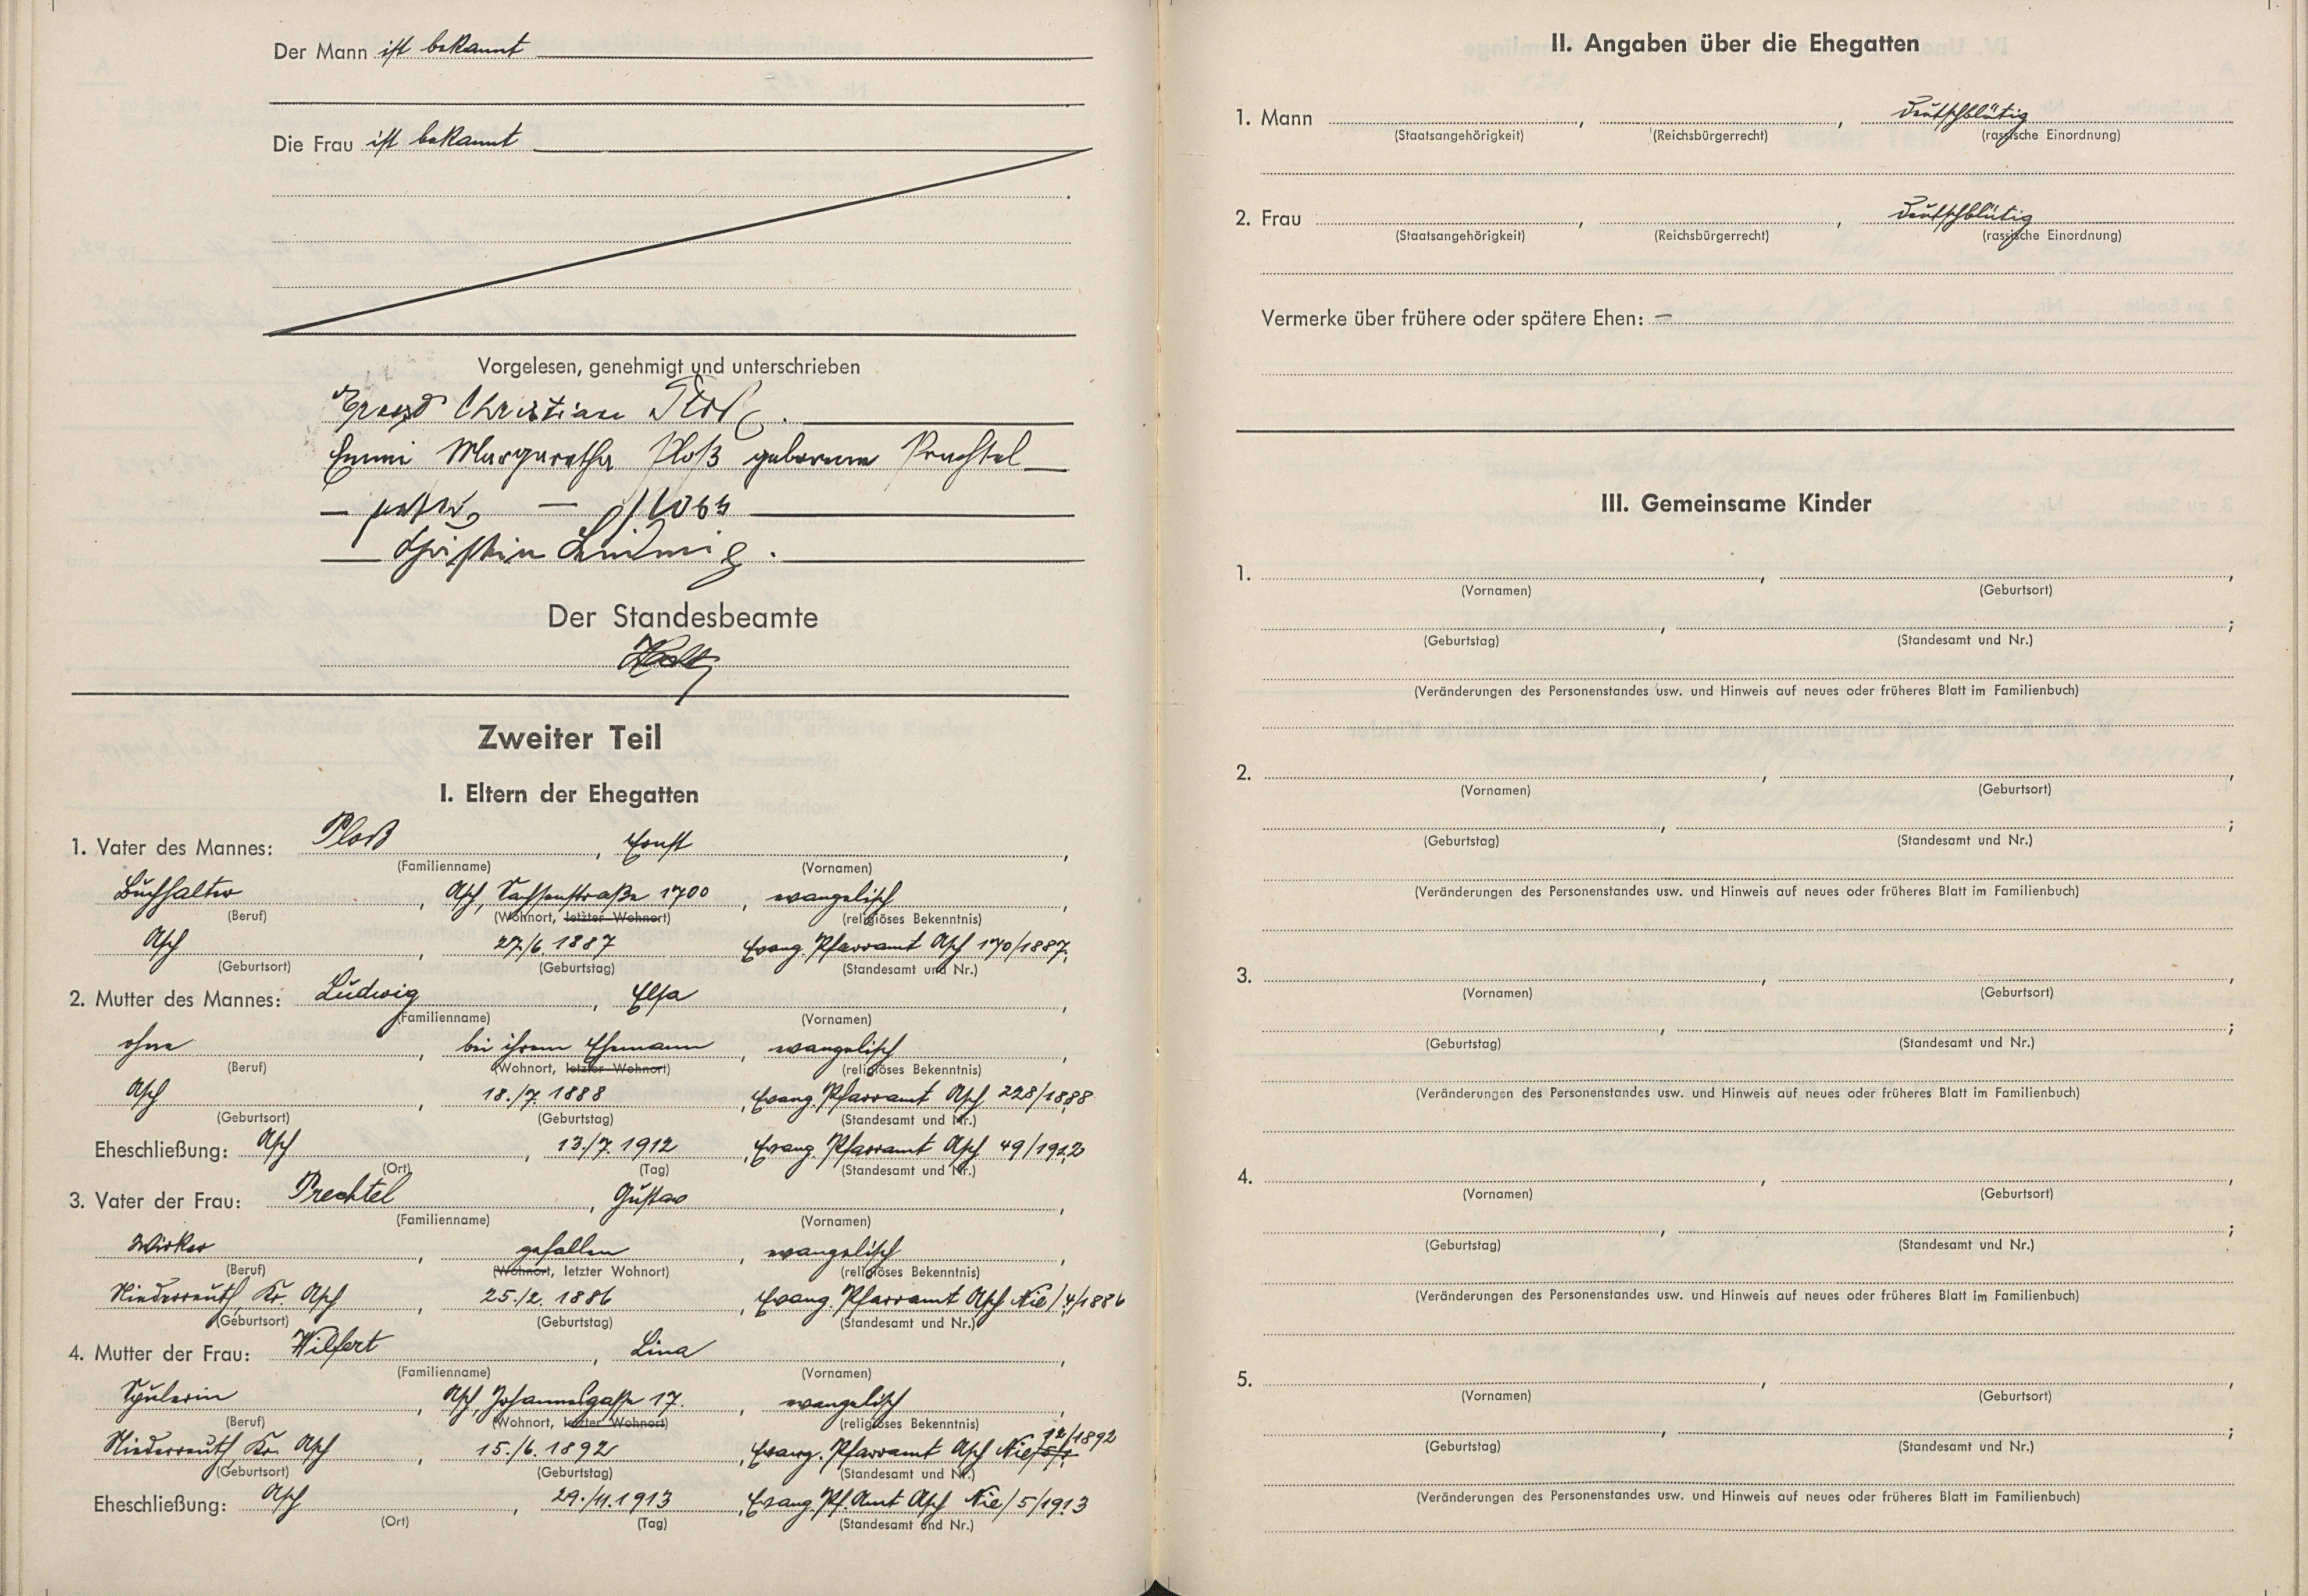 Der Mann ist bekannt
Die Frau ist bekannt
Vorgelesen, genehmigt und unterschrieben
Christian
Emmi Margaretha Ploß geborene Prechtel
Ludwig
Der Standesbeamte
Zweiter Teil
I. Eltern der Ehegatten
1. Vater des Mannes: Ploß, Ernst,
(Familienname) (Vornamen)
Buchhalter, Asch, Sachsenstraße 1700, evangelisch,
(Beruf) (Wohnort, letzter Wohnort) (religiöses Bekenntnis)
Asch, 27./6. 1887 Evang. Pfarramt Asch 170/1887;
(Geburtsort) (Geburtstag) (Standesamt und Nr.)
2. Mutter des Mannes: Ludwig, Elsa,
(Familienname) (Vornamen)
ohne, bei ihrem Ehemann, evangelisch,
(Beruf) (Wohnort, letzter Wohnort) (religiöses Bekenntnis)
Asch, 18./7. 1888, Evang. Pfarramt Asch 228/1888
(Geburtsort) (Geburtstag) (Standesamt und Nr.)
Eheschließung: Asch, 13./7. 1912, Evang. Pfarramt Asch 49/1912
(Ort) (Tag) (Standesamt und Nr.)
3. Vater der Frau: Prechtel, Gustav,
(Familienname) (Vornamen)
Wirker, gefallen, evangelisch,
(Beruf) (Wohnort, letzter Wohnort) (religiöses Bekenntnis)
Niederreuth, Kr. Asch, 25./2. 1886, Evang. Pfarramt Asch Nie/4/1886
(Geburtsort) (Geburtstag) (Standesamt und Nr.)
4. Mutter der Frau: Wilfert, Lina,
(Familienname) (Vornamen)
Spulerin, Asch, Johannesgasse 17., evangelisch,
(Beruf) (Wohnort, letzter Wohnort) (religiöses Bekenntnis)
12/1892
Niederreuth, Kr. Asch, 15./6. 1892, Evang. Pfarramt Asch Nie/
(Geburtsort) (Geburtstag) (Standesamt und Nr.)
Eheschließung: Asch, 29./11. 1913, Evang. Pf. Amt Asch Nie/5/1913
(Ort) (Tag) (Standesamt und Nr.)
II. Angaben über die Ehegatten
1. Mann , , deutschblütig
(Staatsangehörigkeit) (Reichsbürgerrecht) (rassische Einordnung)
2. Frau , , deutschblütig
(Staatsangehörigkeit) (Reichsbürgerrecht) (rassische Einordnung)
Vermerke über frühere oder spätere Ehen: –
III. Gemeinsame Kinder
1. , ,
(Vornamen) (Geburtsort)
, ;
(Geburtstag) (Standesamt und Nr.)
(Veränderungen des Personenstandes usw. und Hinweis auf neues oder früheres Blatt im Familienbuch)
2. , ,
(Vornamen) (Geburtsort)
, ;
(Geburtstag) (Standesamt und Nr.)
(Veränderungen des Personenstandes usw. und Hinweis auf neues oder früheres Blatt im Familienbuch)
3. , ,
(Vornamen) (Geburtsort)
, ;
(Geburtstag) (Standesamt und Nr.)
(Veränderungen des Personenstandes usw. und Hinweis auf neues oder früheres Blatt im Familienbuch)
4. , ,
(Vornamen) (Geburtsort)
, ;
(Geburtstag) (Standesamt und Nr.)
(Veränderungen des Personenstandes usw. und Hinweis auf neues oder früheres Blatt im Familienbuch)
5. , ,
(Vornamen) (Geburtsort)
, ;
(Geburtstag) (Standesamt und Nr.)
(Veränderungen des Personenstandes usw. und Hinweis auf neues oder früheres Blatt im Familienbuch)